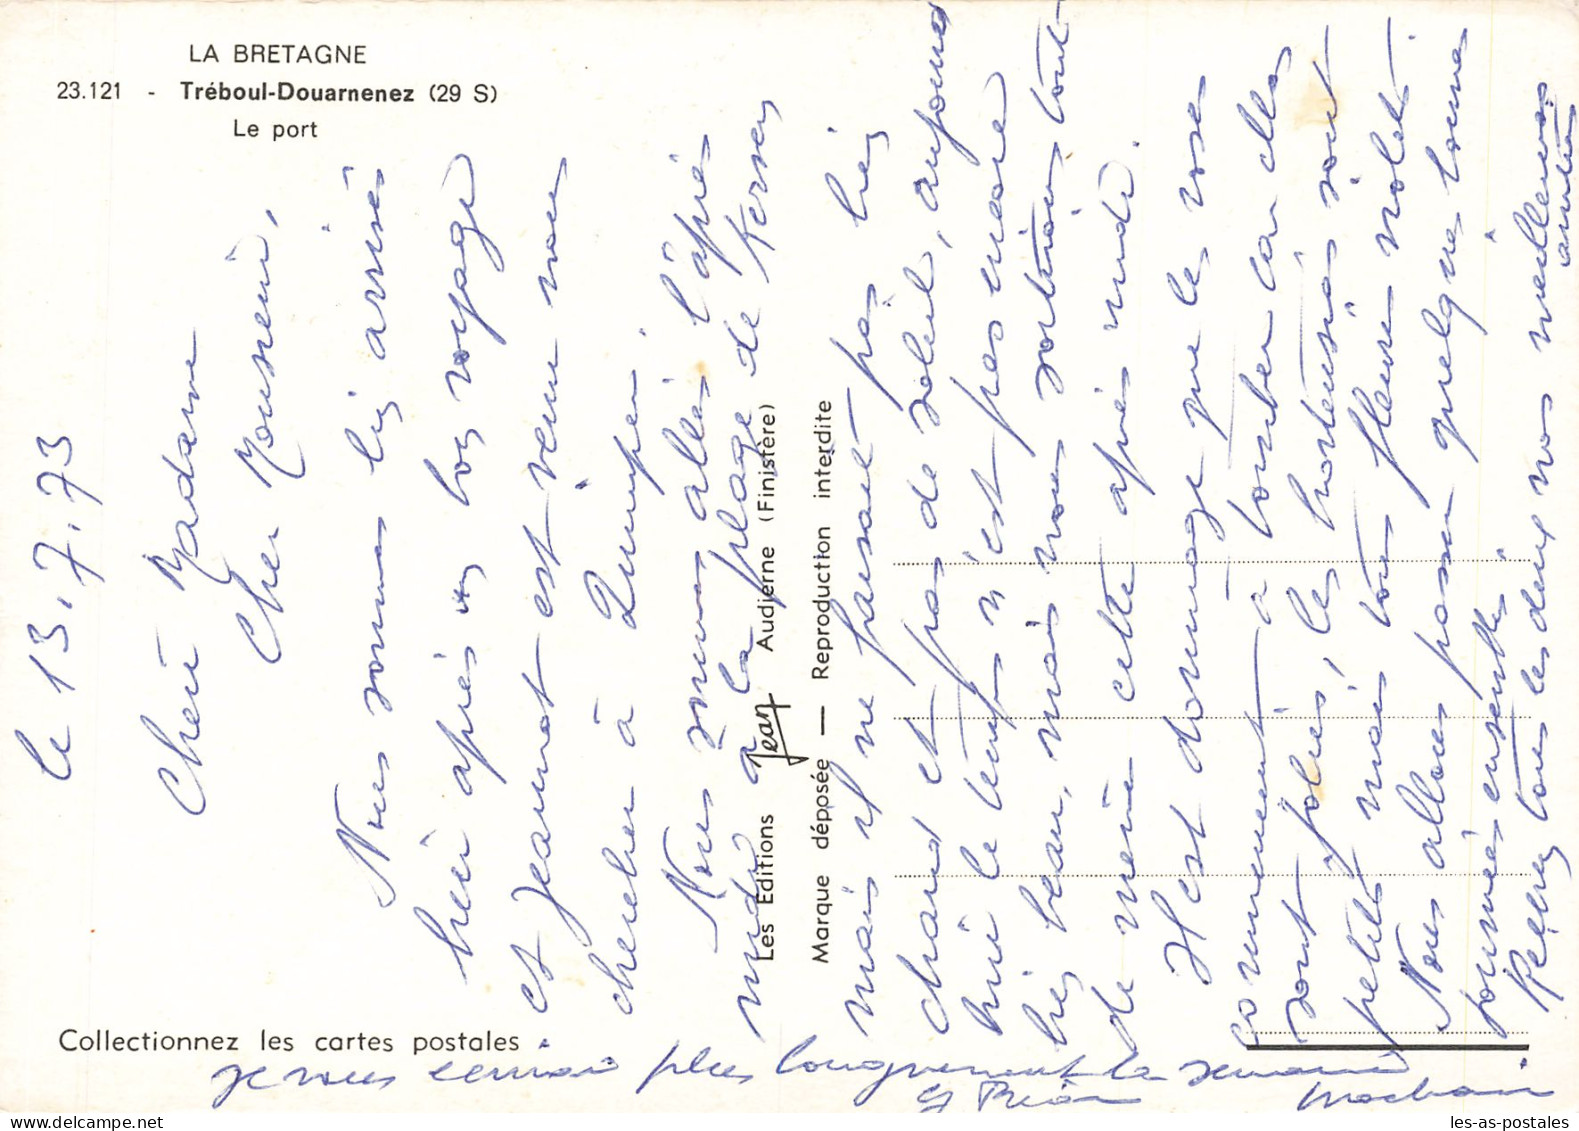 LA BRETAGNE
23.121 - Tréboul-Douarnenez (29 S)
Le port
Les Editions Jean Audierne (Finistère)
Marque déposée — Reproduction interdite
Collectionnez les cartes postales
le 13.7.73
Chère Madame
Cher Monsieur,
Nous sommes bien arrivés
hier après un bon voyage
et Jeannot est venu nous
chercher à Quimper.
Nous sommes allés l'après
midi à la plage de Kersen
mais il ne faisait pas bien
chaud et pas de soleil, aujourd
hui le temps n'est pas encore
bien beau, mais nous sortirons tout
de même cette après midi.
Il est dommage que les roses
commencent à tomber car elles
sont jolies, les hortensias sont
petits mais tous fleuris violet.
Nous allons passer quelques bonnes
journées ensemble
Recevez tous les deux nos meilleures
amitiés
je vous écrirai plus longuement la semaine
prochaine